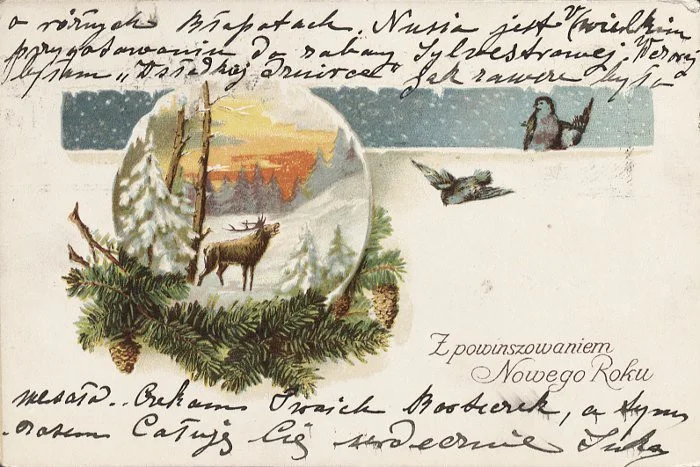 o różnych Błahatach. Nusia jest w wielkim
przygotowaniu do zabawy Sylwestrowej Wczoraj
byłam „ " Jak zawsze była
Z powinszowaniem
Nowego Roku
wesoła.. Czekam Twoich, a tym
razem Całuję Cię serdecznie